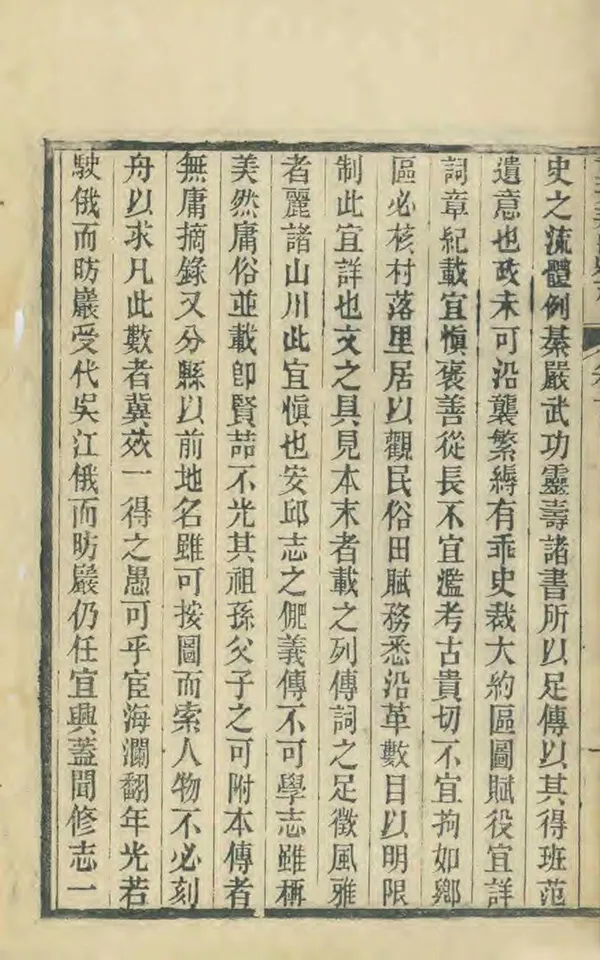 史之流體例綦嚴武功靈壽諸書所以足傳以其得班范
遺意也政未可沿襲繁縟有乖史裁大約區圖賦役宜詳
詞章紀載宜愼褒善從長不宜濫考古貴切不宜拘如鄉
區必核村落里居以觀民俗田賦務悉沿革數目以明限
制此宜詳也文之具見本末者載之列傳詞之足徵風雅
者麗諸山川此宜愼也安邱志之俪義傳不可學志雖稱
美然庸俗並載卽賢喆不光其祖孫父子之可附本傳者
無庸摘錄又分縣以前地名雖可按圖而索人物不必刻
舟以求凡此數者冀效一得之愚可乎宦海瀾翻年光若
駛俄而昉巖受代吳江俄而昉巖仍任宜興蓋聞修志一